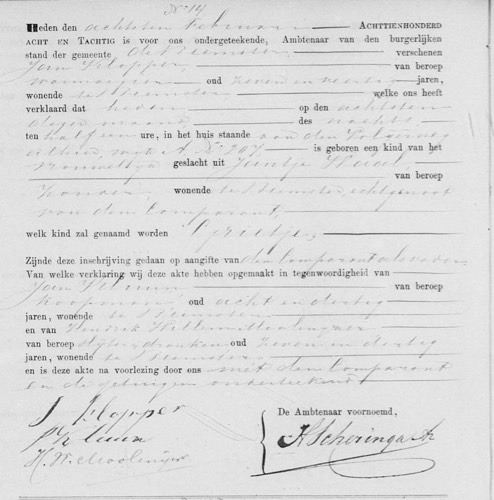 No 14
Heden den achtsten Februari ACHTTIENHONDERD
ACHT EN TACHTIG is voor ons ondergeteekende, Ambtenaar van den burgerlijken
stand der gemeente de Beemster, verschenen
Jan Klopper, van beroep
oud zeven en veertig jaren,
wonende te Beemster welke ons heeft
verklaard dat heden op den achtsten
dezer maand des nachts
ten half een ure, in het huis staande aan den Volgerweg
wijk A No 207, is geboren een kind van het
vrouwelijk geslacht uit Jantje
van beroep
zonder wonende te Beemster, echtgenoot
van den Comparant,
welk kind zal genaamd worden Grietje
Zijnde deze inschrijving gedaan op aangifte van den Comparant als vader
Van welke verklaring wij deze akte hebben opgemaakt in tegenwoordigheid van
Jan van beroep
koopman oud acht en dertig
jaren, wonende te Beemster
en van Hendrik Willem
van beroep oud zeven en dertig
jaren, wonende te Beemster
en is deze akte na voorlezing door ons met den Comparant
en de getuigen onderteekend
J Klopper
De Ambtenaar voornoemd,
K Scheringa
H. W.